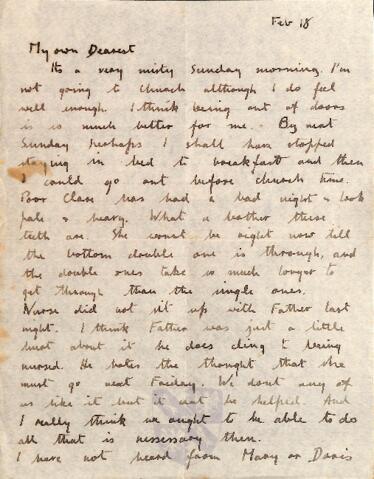 Feb 18
My own Dearest
Its a very misty Sunday morning. I'm
not going to church although I do feel
well enough. I think being out of doors
is so much better for me. By next
Sunday perhaps I shall have stopped
staying in bed to breakfast and then
I could go out before church time.
Poor Clare has had a bad night & look
pale & heavy. What a bother these
teeth are. She wont be right now till
the bottom double one is through, and
the double ones take so much longer to
get through than the single ones.
Nurse did not sit up with Father last
night. I think Father was just a little
hurt about it he does cling to being
nursed. He hates the thought that she
must go next Friday. We dont any of
us like it but it cant be helped. And
I really think we ought to be able to do
all that is nessessary then.
I have not heard from Mary or Doris